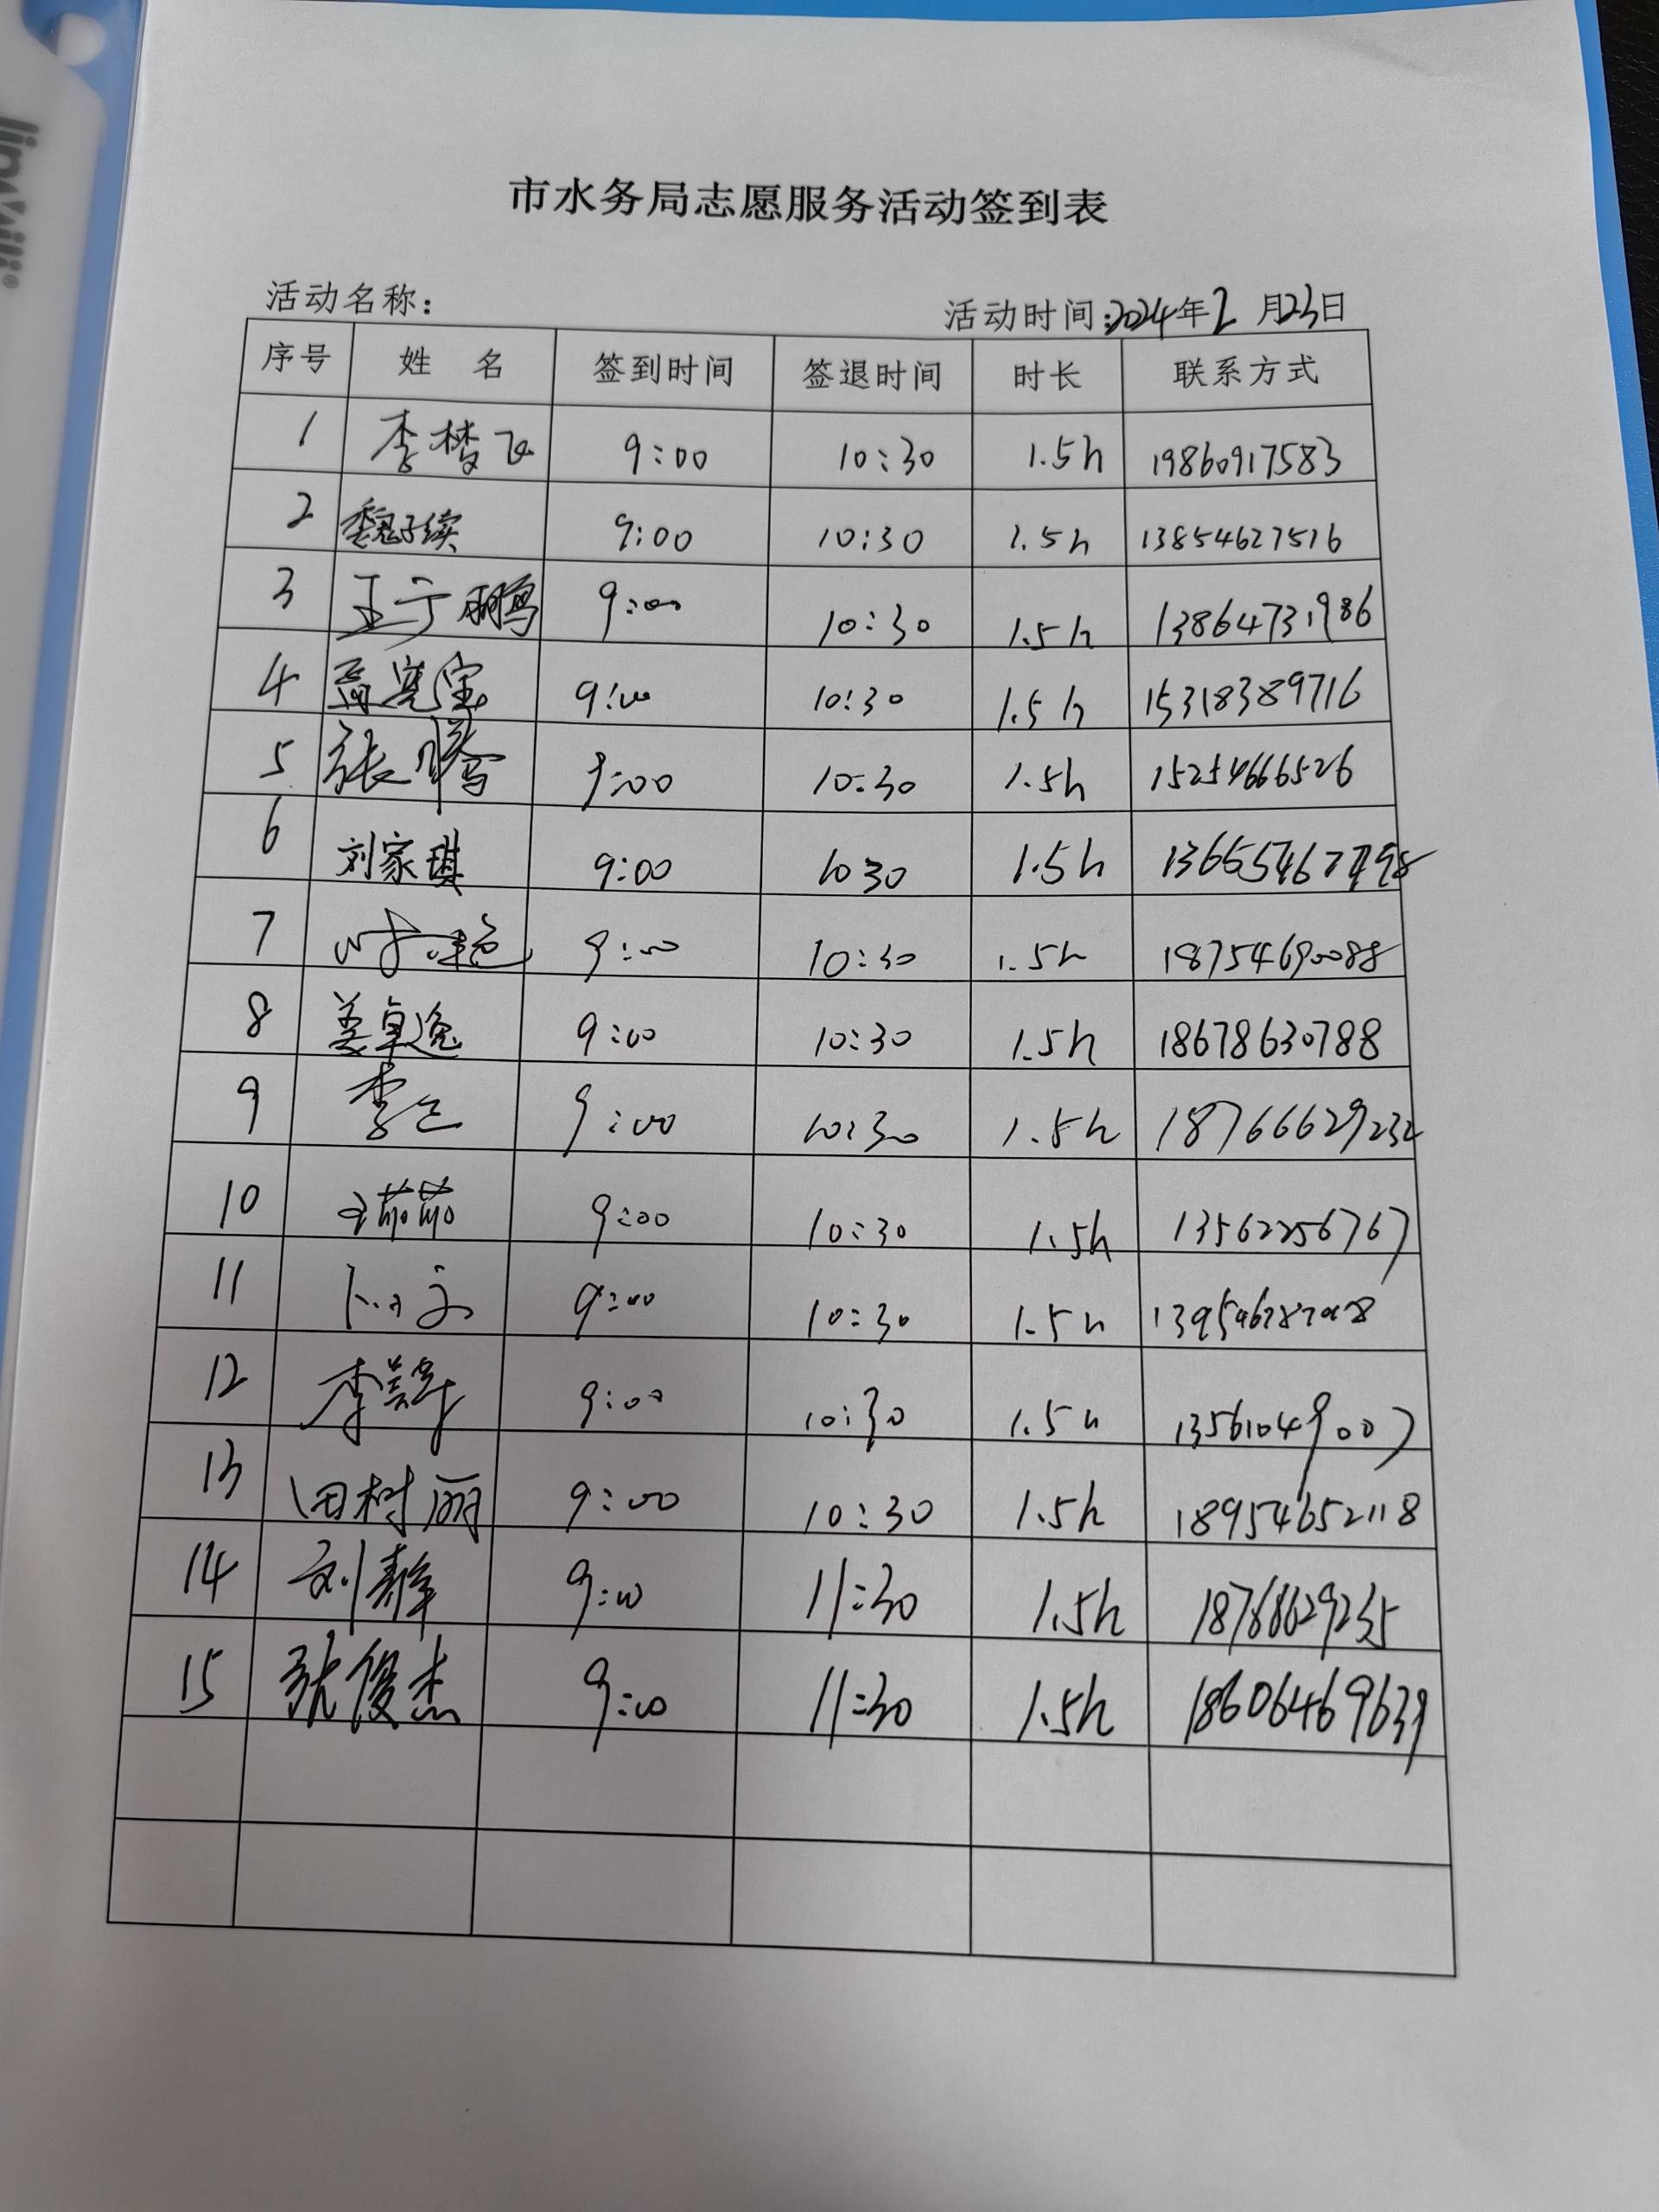 市水务局志愿服务活动签到表
活动名称： 活动时间：2024年2月23日
序号 姓 名 签到时间 签退时间 时长 联系方式
1 李梦飞 9:00 10:30 1.5h 19860917583
2 魏子续 9:00 10:30 1.5h 13854627516
3 王宁鹏 9:00 10:30 1.5h 13864731986
4 9:00 10:30 1.5h 15318389716
5 张腾 9:00 10:30 1.5h 15254666526
6 刘家琪 9:00 10 30 1.5h
7 9:00 10:30 1.5h 18754690088
8 姜卓逸 9:00 10:30 1.5h 18678630788
9 9:00 10:30 1.5h 18766629232
10 9:00 10:30 1.5h 13562256767
11 9:00 10:30 1.5h
12 9:00 10:30 1.5h 13561049007
13 田树丽 9:00 10:30 1.5h 18954652118
14 刘静 9:00 11:30 1.5h
15 张俊杰 9:00 11:30 1.5h 18606469639